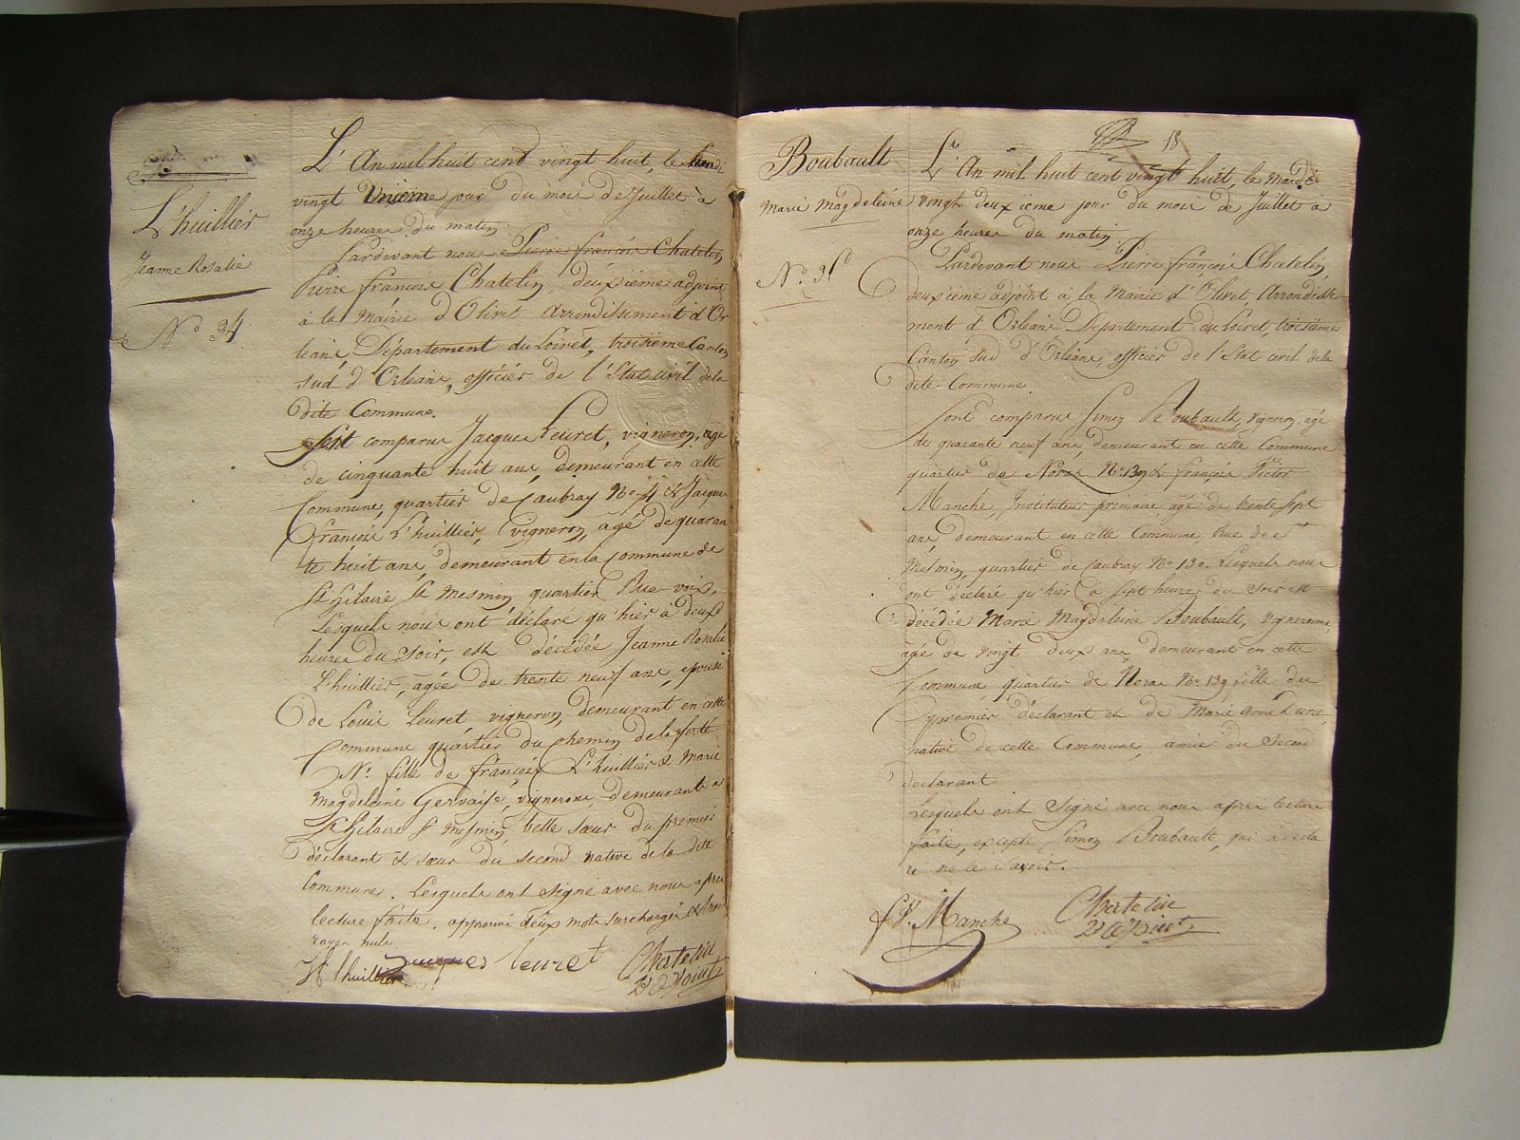 L'huillier
Jeanne Rosalie
N.o 34
L'An mil huit cent vingt huit, le lundi
vingt Unieme jour du mois de Juillet à
onze heures du matin.
Pardevant nous Pierre françois Chatelin,
Pierre francois Chatelin deuxieme adjoint
à la Mairie d'Olivet arrondissement d'Or
leans, Département du Loiret, troisieme Canton
sud d'Orleans, officier de l'Etat civil de la
dite Commune.
Sont comparus Jacques Leuret, vigneron, agé
de cinquante huit ans, demeurant en cette
Commune, quartier de Caubray No 4 & Jacques
François L'huillier, vigneron, agé de quaran
te huit ans, demeurant en la Commune de
St Hilaire St Mesmin quartier
Lesquels nous ont déclaré qu'hier à deux
heures du soir, est décédée Jeanne Rosalie
L'huillier, agée de trente neuf ans, epouse
de Louis Leuret vigneron, demeurant en cette
Commune quartier du chemin de la ferté
No. fille de françois L'huillier & Marie
Magdeleine Gervaise, vignerons, demeurants à
St Hilaire St Mesmin, belle soeur du premier
déclarant & soeur du second native de la dite
Commune. Lesquels ont signé avec nous apres
lecture faite. approuvé deux mots surchargés & trois
rayés nuls
L'huillier Jacques leuret Chatelin
2e Adjoint
18
Boubault
Marie Magdeleine
N.o 35
L'An mil huit cent vingt huit, le Mardi
vingt deuxieme jour du mois de Juillet à
onze heures du matin.
Pardevant nous Pierre françois Chatelin,
deuxieme adjoint à la Mairie d'Olivet, Arrondisse
ment d'Orleans Département du Loiret, troisieme
Canton sud d'Orleans, officier de l'Etat civil de la
dite Commune
Sont comparus Simon Boubault, vigneron, agé
de quarante neuf ans, demeurant en cette Commune
quartier de Noras No. 139 & françois Victor
Manche, Instituteur primaire agé de trente sept
ans, demeurant en cette Commune, Rue de St
Mesmin, quartier de Caubray No. 130. Lesquels nous
ont déclaré qu'hier à sept heures du soir est
décédée Marie Magdeleine Boubault, vigneronne,
agé de vingt deux ans, demeurant en cette
Commune quartier de Noras No. 139 fille du
premier déclarant et de Marie Anne
native de cette Commune, amie du second
declarant
Lesquels ont signé avec nous apres lecture
faite, excepté Simon Boubault, qui a decla
ré ne le savoir.
Manche Chatelin
2e Adjoint